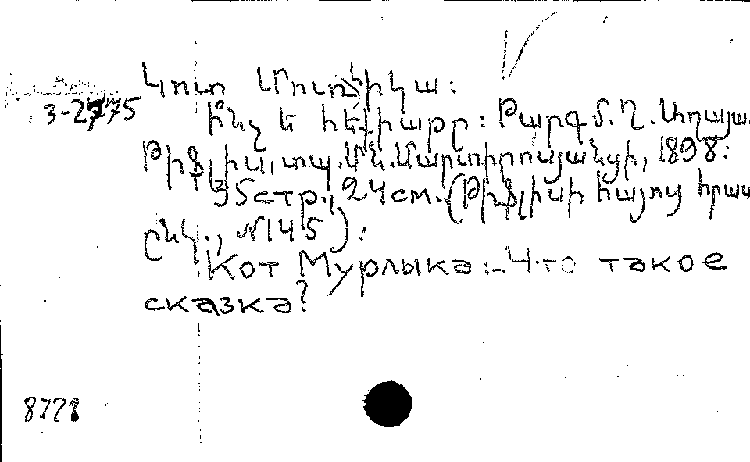 Կոտ Մուռլիկա:
3-2775
Ի՞նչ է հէքիաթը: Թարգմ. Ղ. Աղայա
Թիֆլիս, տպ. Մն. Մարտիրոսյանցի, 1898:
35 стр., 24 см. (Թիֆլիսի հայոց հրատ
ընկ., №145):
Кот Мурлыка:-Что такое
сказка?
8778